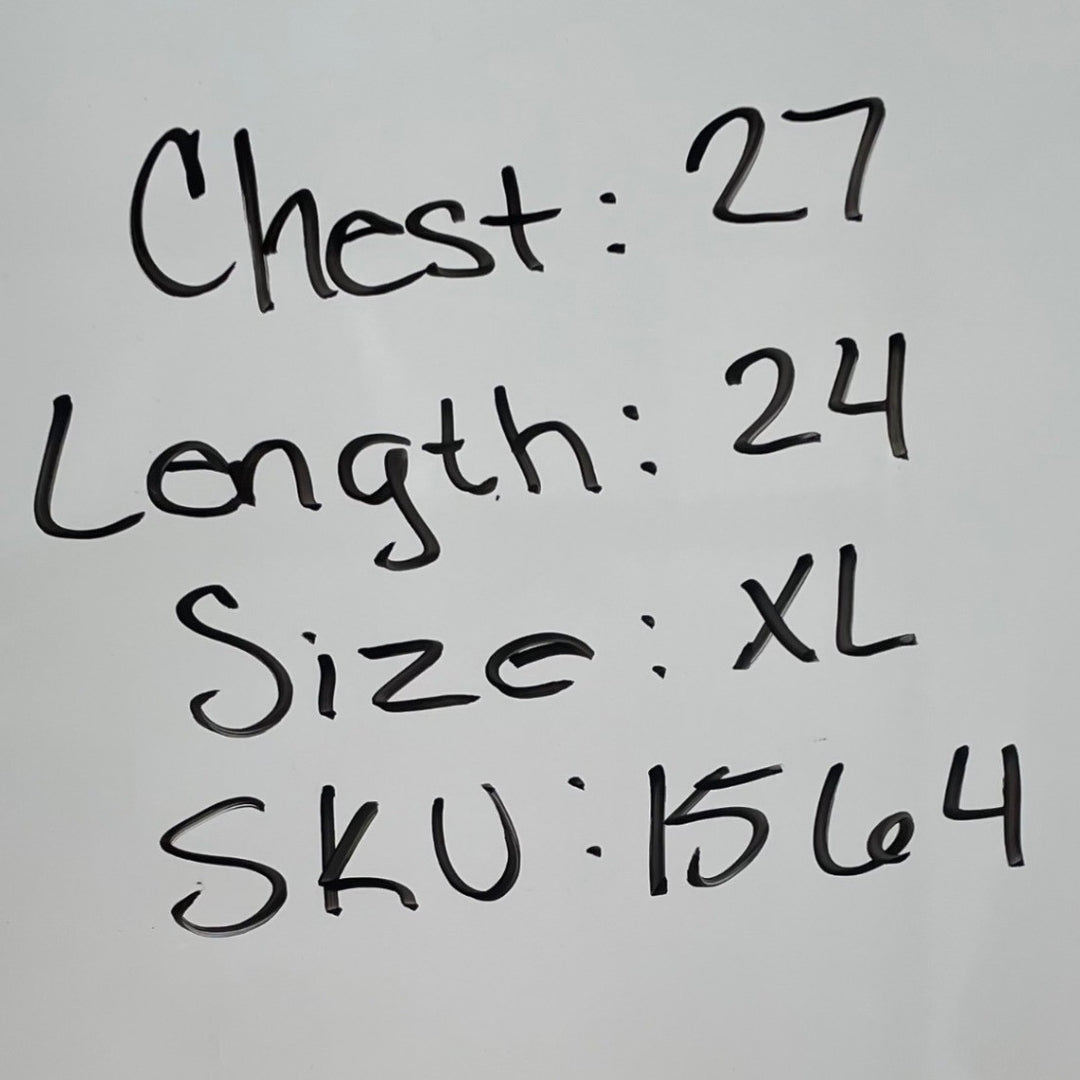 Chest: 27
Length: 24
Size: XL
SKU: 1564